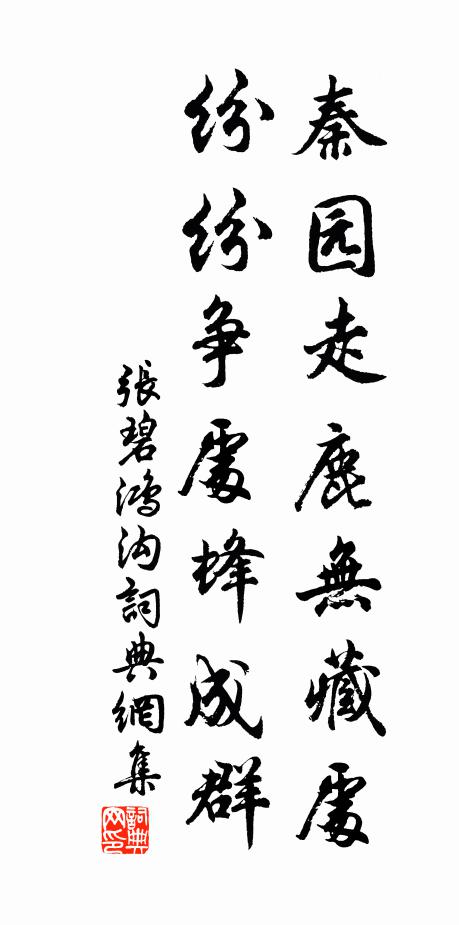 秦园走鹿無藏處
纷纷争處蜂成群
張碧鸿沟詞典網集
詞典网印